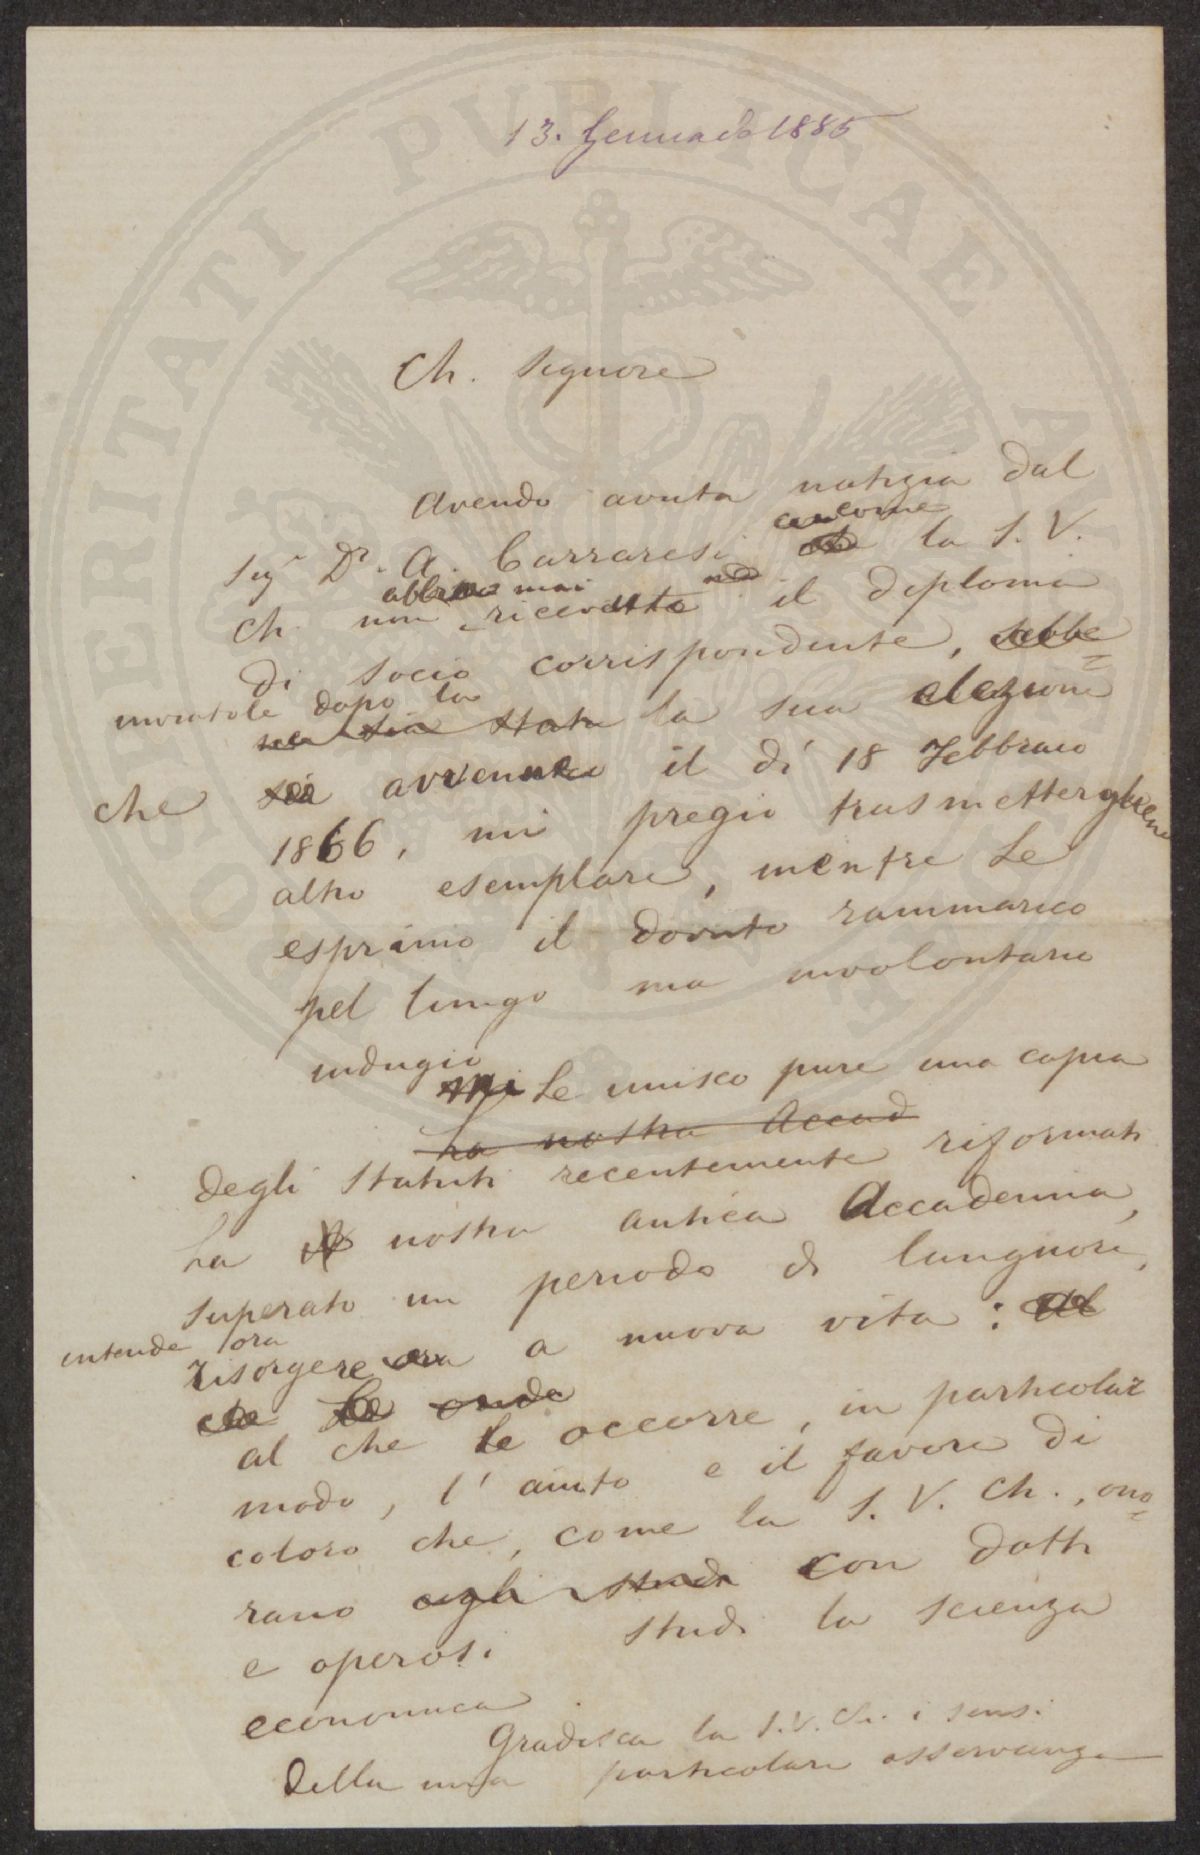 PROSPERITATI PVBLICAE AVGENDAE
13. Gennaio 1885
Ch. Signore
Avendo avuta notizia dal
come
Sigr Dr. A. Carraresi che la S. V.
abbia mai
Ch. non ricevuto il diploma
di socio corrispondente, sebbe=
inviatole dopo la
ne sia stata la sua elezione
che sia avvenuta il dí 18 Febbraio
1866, mi pregio trasmettergliene
altro esemplare, mentre Le
esprimo il dovuto rammarico
pel lungo ma involontario
indugio
Le unisco pure una copia
La nostra Accad
degli Statuti recentemente riformati
La nostra antica Accademia,
superato un periodo di languore,
intende ora
risorgere ora a nuova vita: al
che Le onde
al che le occorre, in particolar
modo, l'aiuto e il favore di
coloro che, come la S. V. Ch., ono=
rano cogli studi con dotti
e operosi studi la scienza
economica
Gradisca la S. V. Ch. i sensi
della mia particolare osservanza